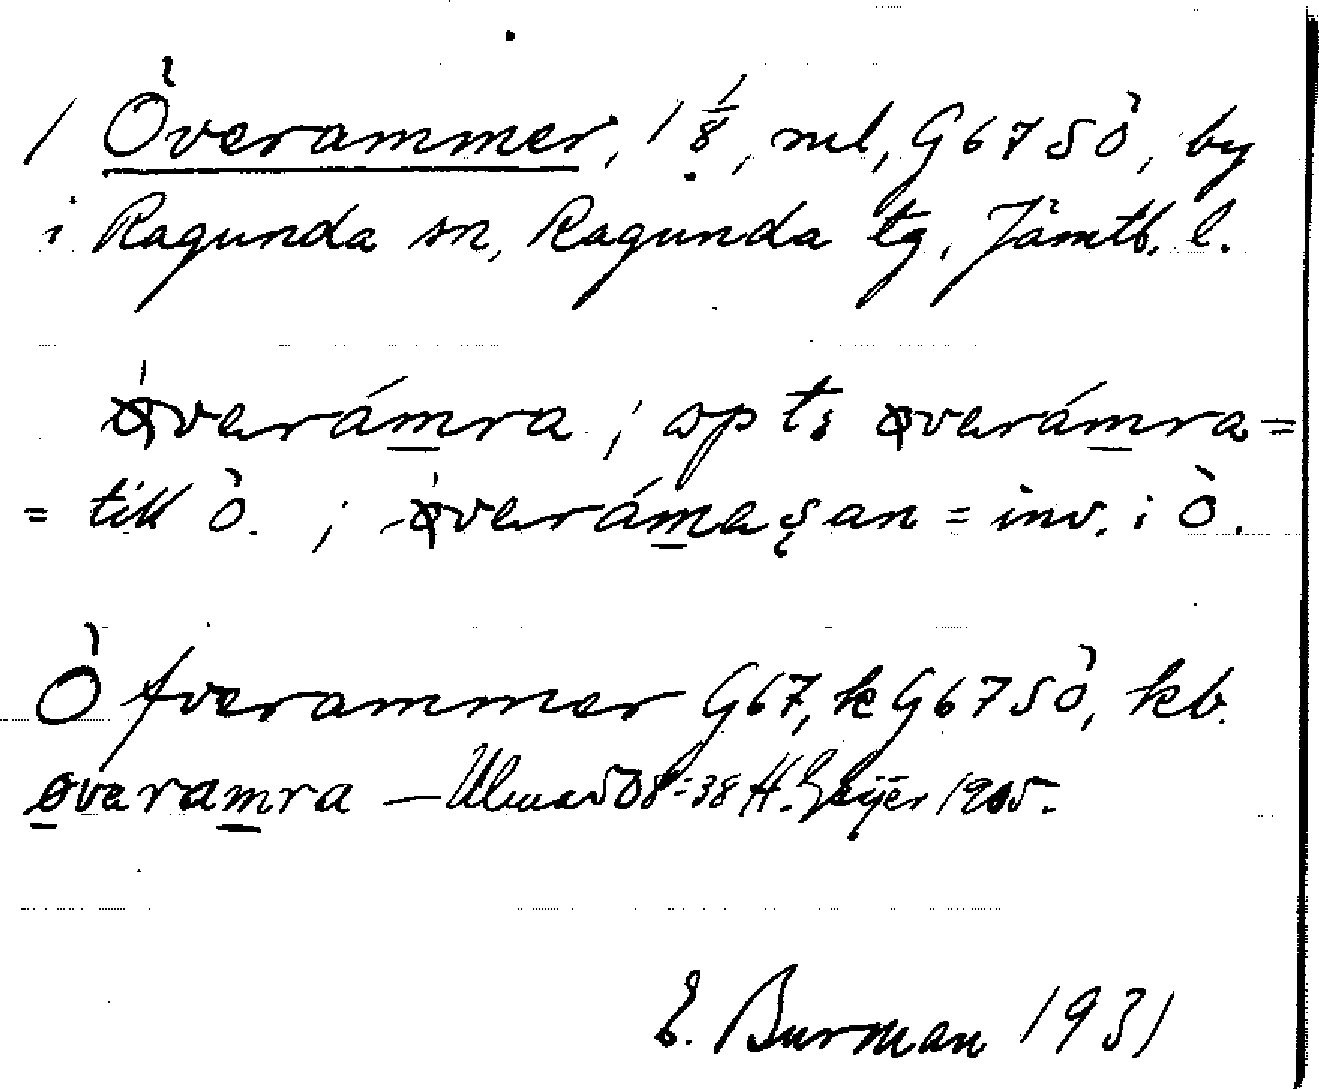 / Överammer, 1 1/8, ml, G67SÖ, by
i Ragunda sn, Ragunda tg, Jämtb. l.
överámra ; op ts överámra=
= till Ö. ; överámaşan = inv. i Ö.
Öfverammer G67, k G67SÖ, kb.
øveramra — Ulma 508:38 H. Geijer 1905.
E. Burman 1931